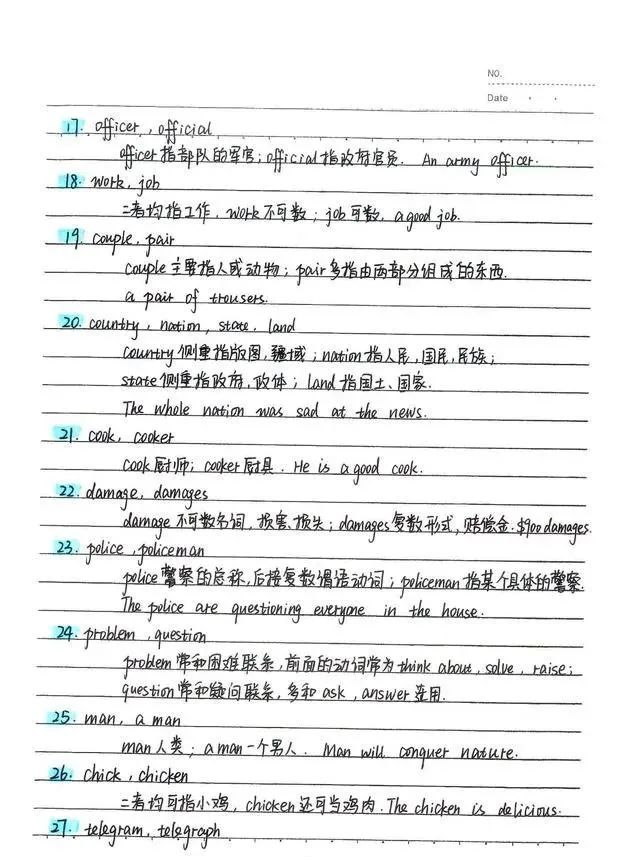 NO.
Date
17. officer, official
officer指部队的军官;official指政府官员. An army officer.
18. work, job
二者均指工作, work不可数; job可数, a good job.
19. couple, pair
couple主要指人或动物; pair多指由两部分组成的东西.
a pair of trousers.
20. country, nation, state, land
country侧重指版图,疆域; nation指人民,国民,民族;
state侧重指政府,政体; land指国土、国家.
The whole nation was sad at the news.
21. cook, cooker
cook厨师; cooker厨具. He is a good cook.
22. damage, damages
damage不可数名词,损害、损失; damages复数形式,赔偿金. $900 damages.
23. police, policeman
police警察的总称,后接复数谓语动词; policeman指某个具体的警察.
The police are questioning everyone in the house.
24. problem, question
problem常和困难联系,前面的动词常为think about, solve, raise;
question常和疑问联系,多和ask, answer连用.
25. man, a man
man人类; a man一个男人. Man will conquer nature.
26. chick, chicken
二者均可指小鸡, chicken还可当鸡肉. The chicken is delicious.
27. telegram, telegraph